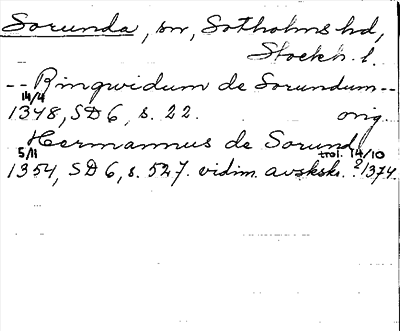 Sorunda, sn, Sotholms hd,
Stockh. l.
-- Ringwidum de Sorundum --
14/4
1348, SD 6, s. 22. orig.
Hermannus de Sorund
5/11 trol. 14/10
1354, SD 6, s. 527. vidim. avskr. ? 1374.